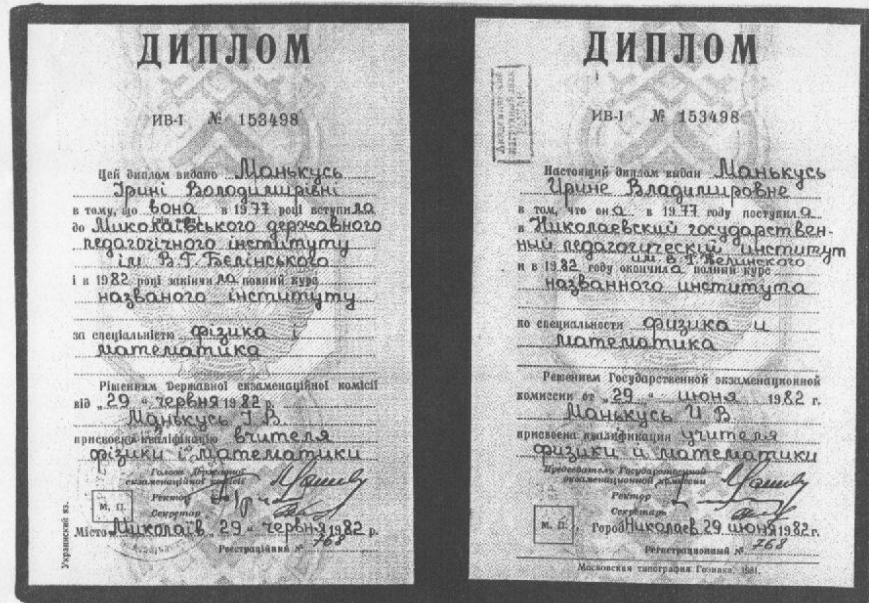 ДИПЛОМ
ИВ-I № 153498
Цей диплом видано Манькусь
Ірині Володимирівні
в тому, що вона в 1977 році вступила
до Миколаївського державного
педагогічного інституту
ім. В.Г. Бєлінського
і в 1982 році закінчила повний курс
названого інституту
за спеціальністю фізика і
математика
Рішенням Державної екзаменаційної комісії
від „29 “ червня 1982 р.
Манькусь І.В.
присвоєна кваліфікація вчителя
фізики і математики
Голова Державної
екзаменаційної комісії
Ректор
Секретар
М. П.
Місто Миколаїв „29 “ червня 1982 р.
Реєстраційний № 768
Украинский яз.
ДИПЛОМ
ИВ-I № 153498
Настоящий диплом выдан Манькусь
Ирине Владимировне
в том, что она в 1977 году поступила
в Николаевский государствен-
ный педагогический институт
им. В.Г. Белинского
и в 1982 году окончила полный курс
названного института
по специальности физика и
математика
Решением Государственной экзаменационной
комиссии от „29 “ июня 1982 г.
Манькусь И В
присвоена квалификация учителя
физики и математики
Председатель Государственной
экзаменационной комиссии
Ректор
Секретарь
М. П.
Город Николаев 29 июня 1982г.
Регистрационный № 768
Московская типография Гознака. 1981.